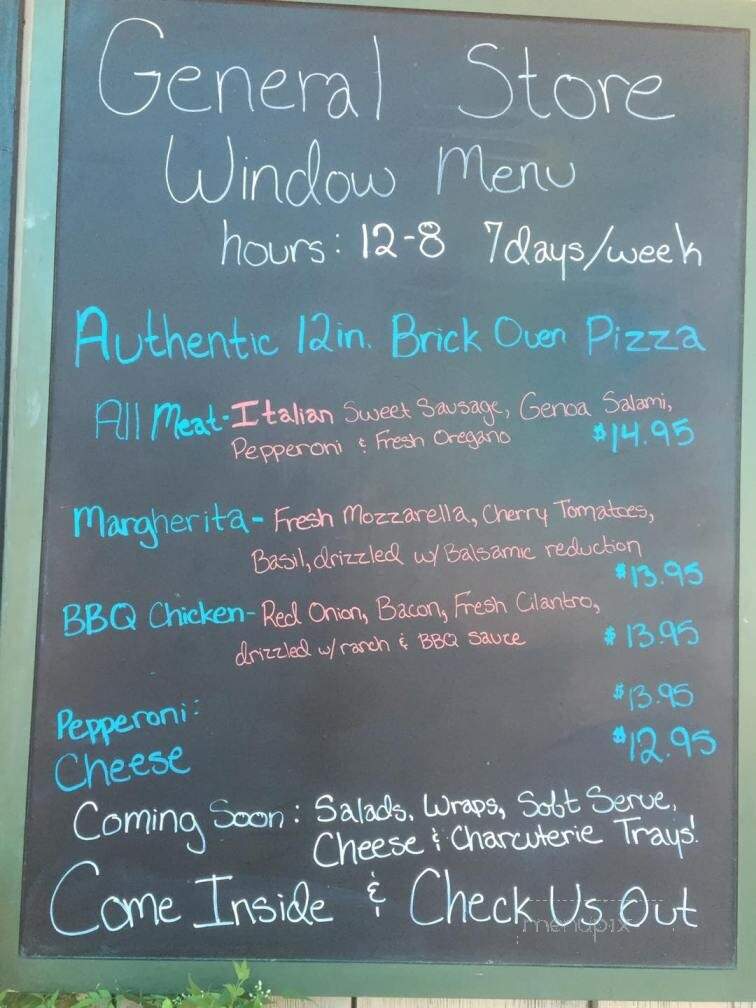 General Store
Window Menu
hours: 12-8 7days/week
Authentic 12in. Brick Oven Pizza
All Meat- Italian Sweet Sausage, Genoa Salami,
Pepperoni & Fresh Oregano $14.95
Margherita- Fresh Mozzarella, Cherry Tomatoes,
Basil, drizzled w/ Balsamic reduction
$13.95
BBQ Chicken- Red Onion, Bacon, Fresh Cilantro,
drizzled w/ ranch & BBQ sauce $13.95
Pepperoni: $13.95
Cheese $12.95
Coming Soon: Salads, Wraps, Soft Serve,
Cheese & Charcuterie Trays!
Come Inside & Check Us Out
menupix